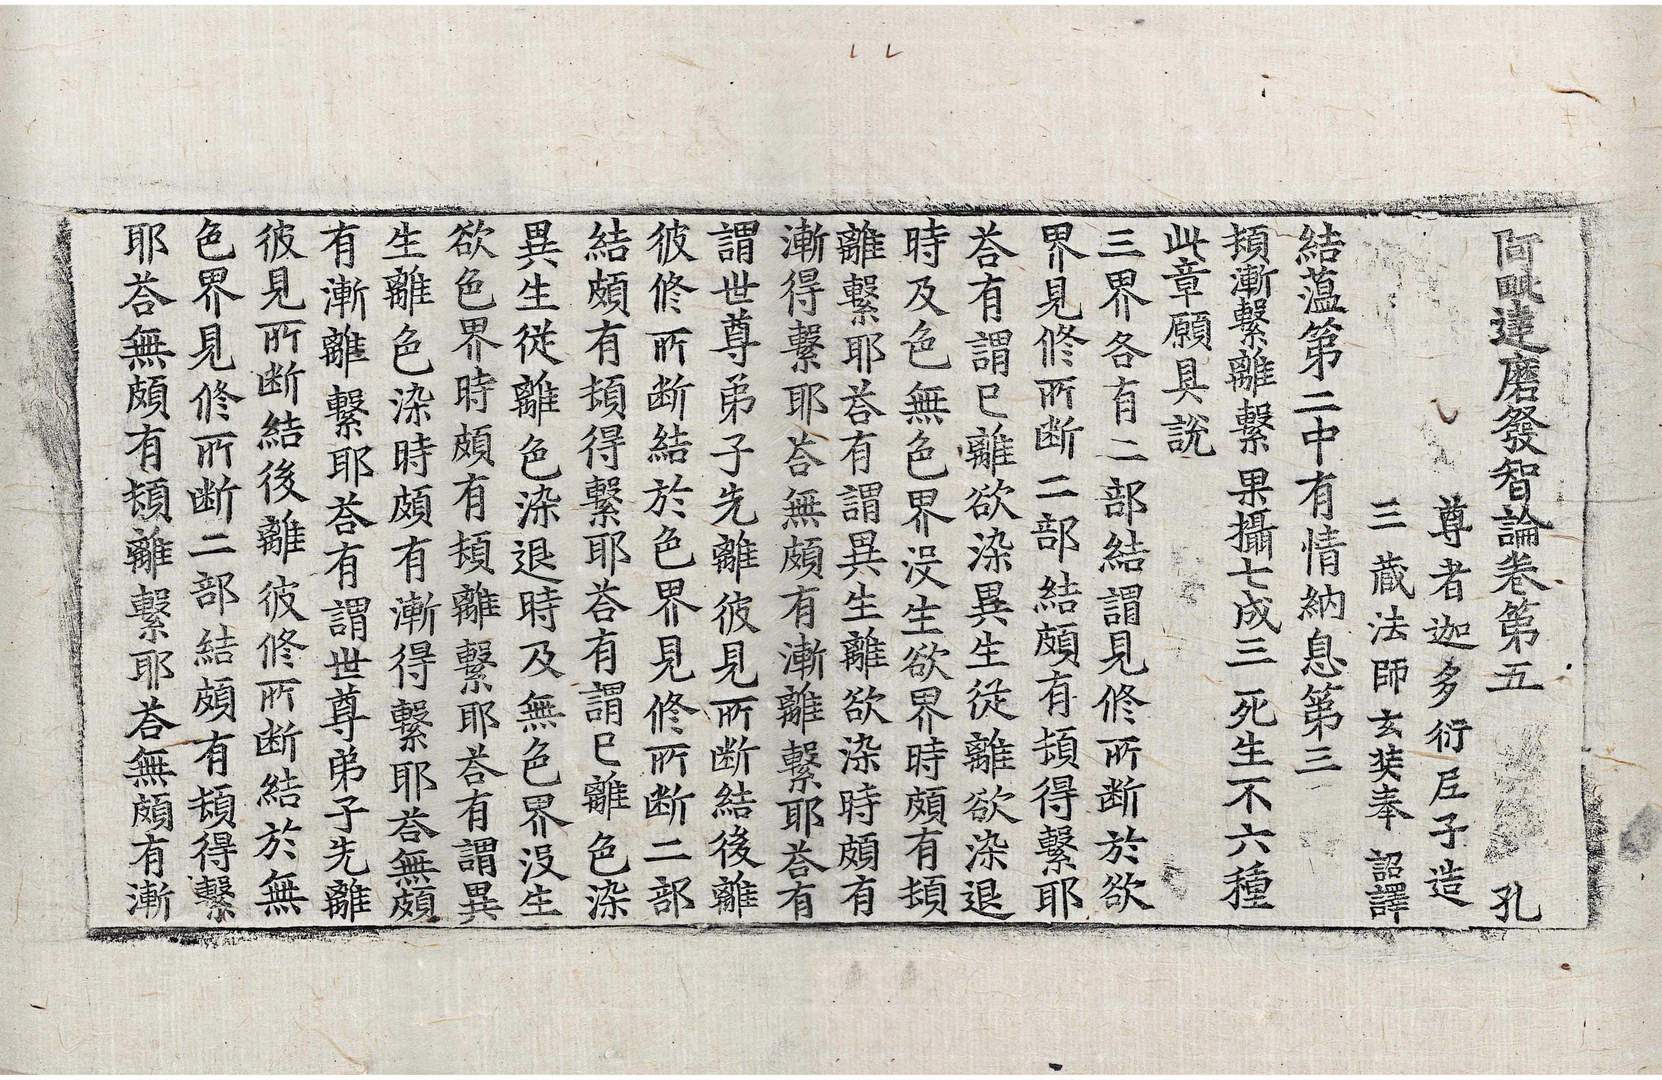 阿毗達磨發智論卷第五　孔
尊者迦多衍尼子造
三藏法師玄奘奉　詔譯
結蘊第二中有情納息第三
頓漸繫離繫　果攝七成三　死生不六種
此章願具說
三界各有二部結謂見修所斷於欲
界見修所斷二部結頗有頓得繫耶
荅有謂已離欲染異生從離欲染退
時及色無色界沒生欲界時頗有頓
離繫耶荅有謂異生離欲染時頗有
漸得繫耶荅無頗有漸離繫耶荅有
謂世尊弟子先離彼見所斷結後離
彼修所斷結於色界見修所斷二部
結頗有頓得繫耶荅有謂已離色染
異生從離色染退時及無色界沒生
欲色界時頗有頓離繫耶荅有謂異
生離色染時頗有漸得繫耶荅無頗
有漸離繫耶荅有謂世尊弟子先離
彼見所斷結後離彼修所斷結於無
色界見修所斷二部結頗有頓得繫
耶荅無頗有頓離繫耶荅無頗有漸